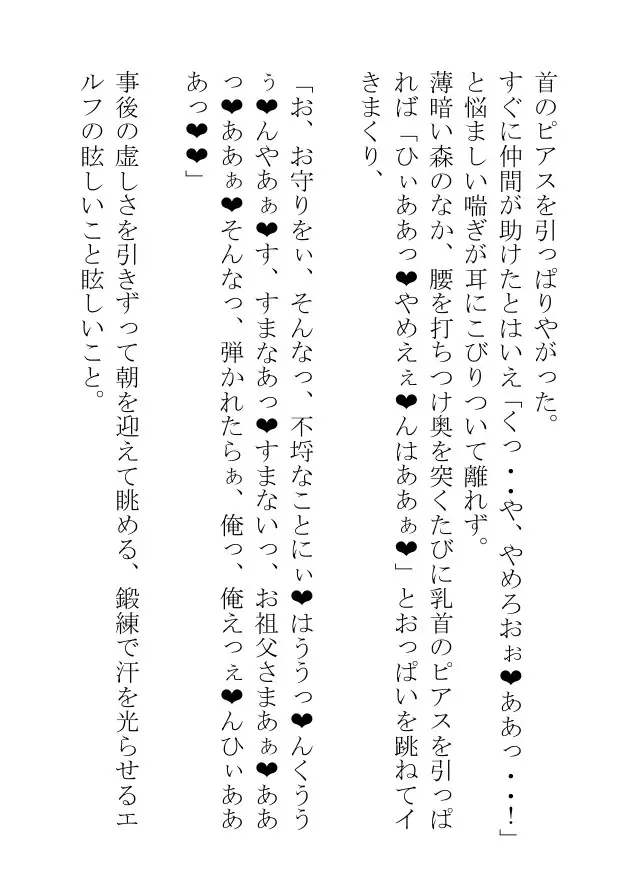 首のピアスを引っぱりやがった。
すぐに仲間が助けたとはいえ「くっ・・や、やめろおぉ❤ああっ・・！」
と悩ましい喘ぎが耳にこびりついて離れず。
薄暗い森のなか、腰を打ちつけ奥を突くたびに乳首のピアスを引っぱ
れば「ひぃああっ❤やめえぇ❤んはああぁ❤」とおっぱいを跳ねてイ
きまくり、
「お、お守りをぃ、そんなっ、不埒なことにぃ❤はううっ❤んくうう
ぅ❤んやあぁ❤す、すまなあっ❤すまないっ、お祖父さまあぁ❤ああ
っ❤ああぁ❤そんなっ、弾かれたらぁ、俺っ、俺えっぇ❤んひぃああ
あっ❤❤」
事後の虚しさを引きずって朝を迎えて眺める、鍛練で汗を光らせるエ
ルフの眩しいこと眩しいこと。